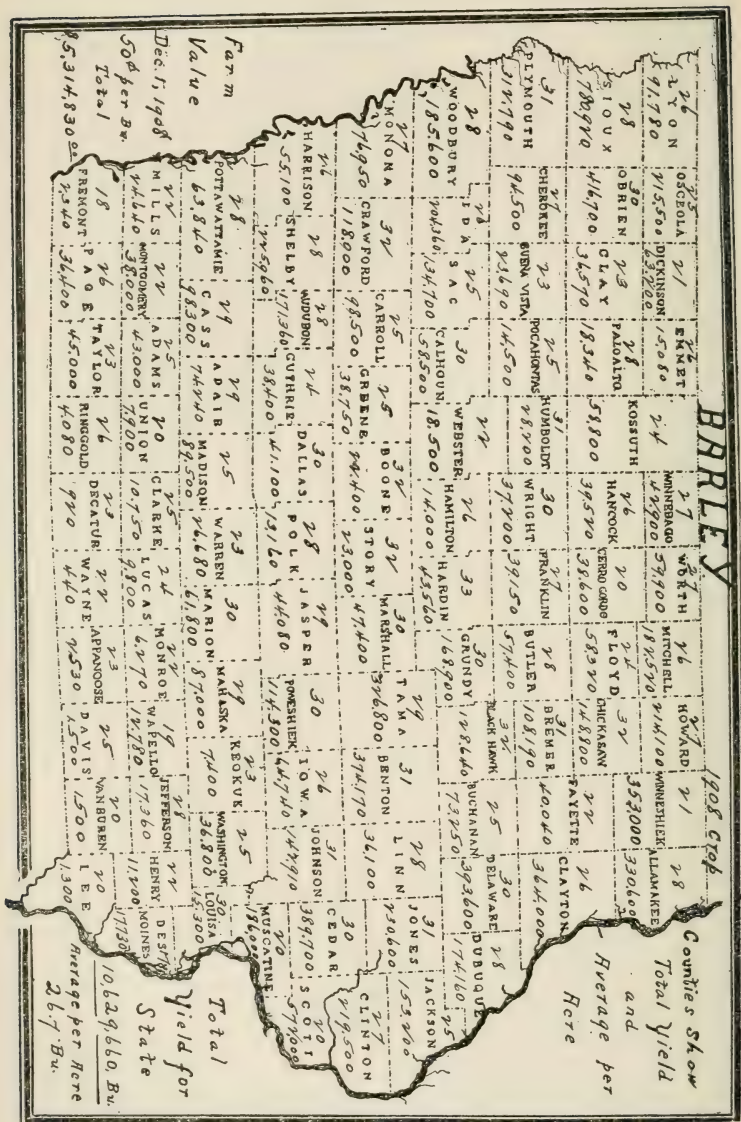 BARLEY
1908 Crop
Counties Show
Total Yield
and
Average per
Acre
26
LYON
91,780
25
OSCEOLA
215,500
21
DICKINSON
63,200
26
EMMET
15,080
24
KOSSUTH
58,800
27
WINNEBAGO
42,900
27
WORTH
59,900
26
MITCHELL
182,520
27
HOWARD
214,100
21
WINNESHIEK
353,000
28
ALLAMAKEE
28
SIOUX
780,920
30
OBRIEN
416,700
23
CLAY
36,570
28
PALO ALTO
18,340
26
HANCOCK
39,520
20
CERRO GORDO
38,600
24
FLOYD
58,320
32
CHICKASAW
148,800
31
PLYMOUTH
312,790
27
CHEROKEE
94,500
23
BUENA VISTA
23,690
25
POCAHONTAS
14,500
31
HUMBOLDT
28,200
30
WRIGHT
37,200
27
FRANKLIN
39,150
28
BUTLER
57,400
31
BREMER
108,190
22
FAYETTE
40,040
26
CLAYTON
364,000
28
WOODBURY
185,600
IDA
204,360
25
SAC
134,700
30
CALHOUN
58,500
22
WEBSTER
18,500
26
HAMILTON
14,000
33
HARDIN
43,560
30
GRUNDY
168,900
32
BLACK HAWK
128,640
25
BUCHANAN
73,250
30
DELAWARE
393,600
28
DUBUQUE
174,160
27
MONONA
76,950
32
CRAWFORD
118,000
25
CARROLL
98,500
25
GREENE
38,750
32
BOONE
22,400
32
STORY
23,000
30
MARSHALL
47,400
29
TAMA
326,800
31
BENTON
374,170
28
LINN
36,100
31
JONES
230,600
25
JACKSON
153,200
26
HARRISON
55,100
28
SHELBY
225,960
28
AUDUBON
171,360
24
GUTHRIE
38,400
30
DALLAS
41,100
28
POLK
13,160
29
JASPER
44,080
30
POWESHIEK
114,300
26
IOWA
44,740
31
JOHNSON
142,910
30
CEDAR
389,700
27
CLINTON
219,500
20
SCOTT
572,000
20
MUSCATINE
186,000
28
POTTAWATTAMIE
63,840
29
CASS
98,300
29
ADAIR
74,240
25
MADISON
89,500
23
WARREN
26,680
30
MARION
61,800
29
MAHASKA
87,000
23
KEOKUK
7,400
25
WASHINGTON
36,800
30
LOUISA
22
MILLS
24,640
22
MONTGOMERY
38,000
25
ADAMS
43,000
20
UNION
7,900
25
CLARKE
10,750
24
LUCAS
9,800
22
MONROE
6,270
19
WAPELLO
12,780
28
JEFFERSON
17,360
22
HENRY
11,200
DES
MOINES
17,730
18
FREMONT
2,340
26
PAGE
36,400
23
TAYLOR
45,000
26
RINGGOLD
4,080
23
DECATUR
920
22
WAYNE
440
23
APPANOOSE
2,530
25
DAVIS
1,500
20
VANBUREN
1,500
20
LEE
1,300
Farm
Value
Dec. 1, 1908
50¢ per Bu.
Total
$5,314,830.00
Total
Yield for
State
10,629,660, Bu.
Average per Acre
26.7 Bu.